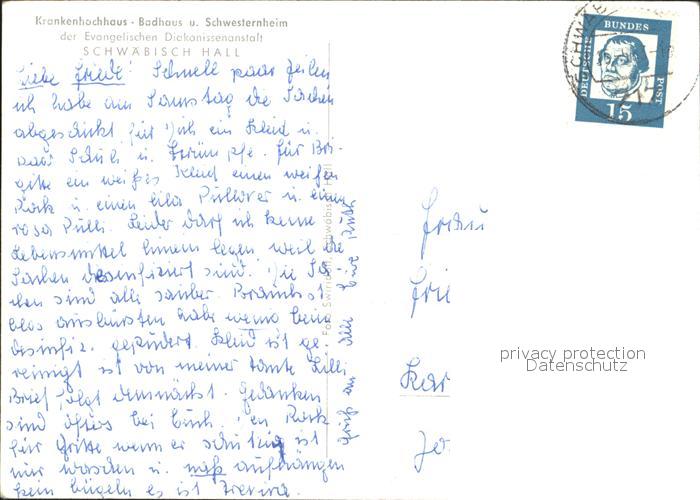 Krankenhochhaus · Badhaus u. Schwesternheim
der Evangelischen Diakonissenanstalt
SCHWÄBISCH HALL
Liebe Friedl! Schnell paar Zeilen
ich habe am Samstag die Sachen
abgeschickt für Dich ein Kleid u.
paar Schuh u. Strümpfe. für Bri-
gitte ein weißes Kleid einen weißen
Rock u. einen lila Pullover u. einen
rosa Pulli. Leider darf ich keine
Lebensmittel hinein legen weil die
Sachen desinfiziert sind. Die Sa-
chen sind alle sauber. Brauchst
blos ausbürsten habe wenig beim
desinfiz. Kleid ist ge-
reinigt ist von meiner Tante Lilli
Brief folgt demnächst. Gedanken
sind öfters bei Euch. Rock
für Gitte wenn er schmutzig ist
nur waschen u. naß aufhängen
kein bügeln es ist Trevira.
Gruß an alle Eure
Foto Schwäbisch Hall
DEUTSCHE BUNDES POST
15
SCHWÄB
Frau
Frie
Kar
privacy protection
Datenschutz